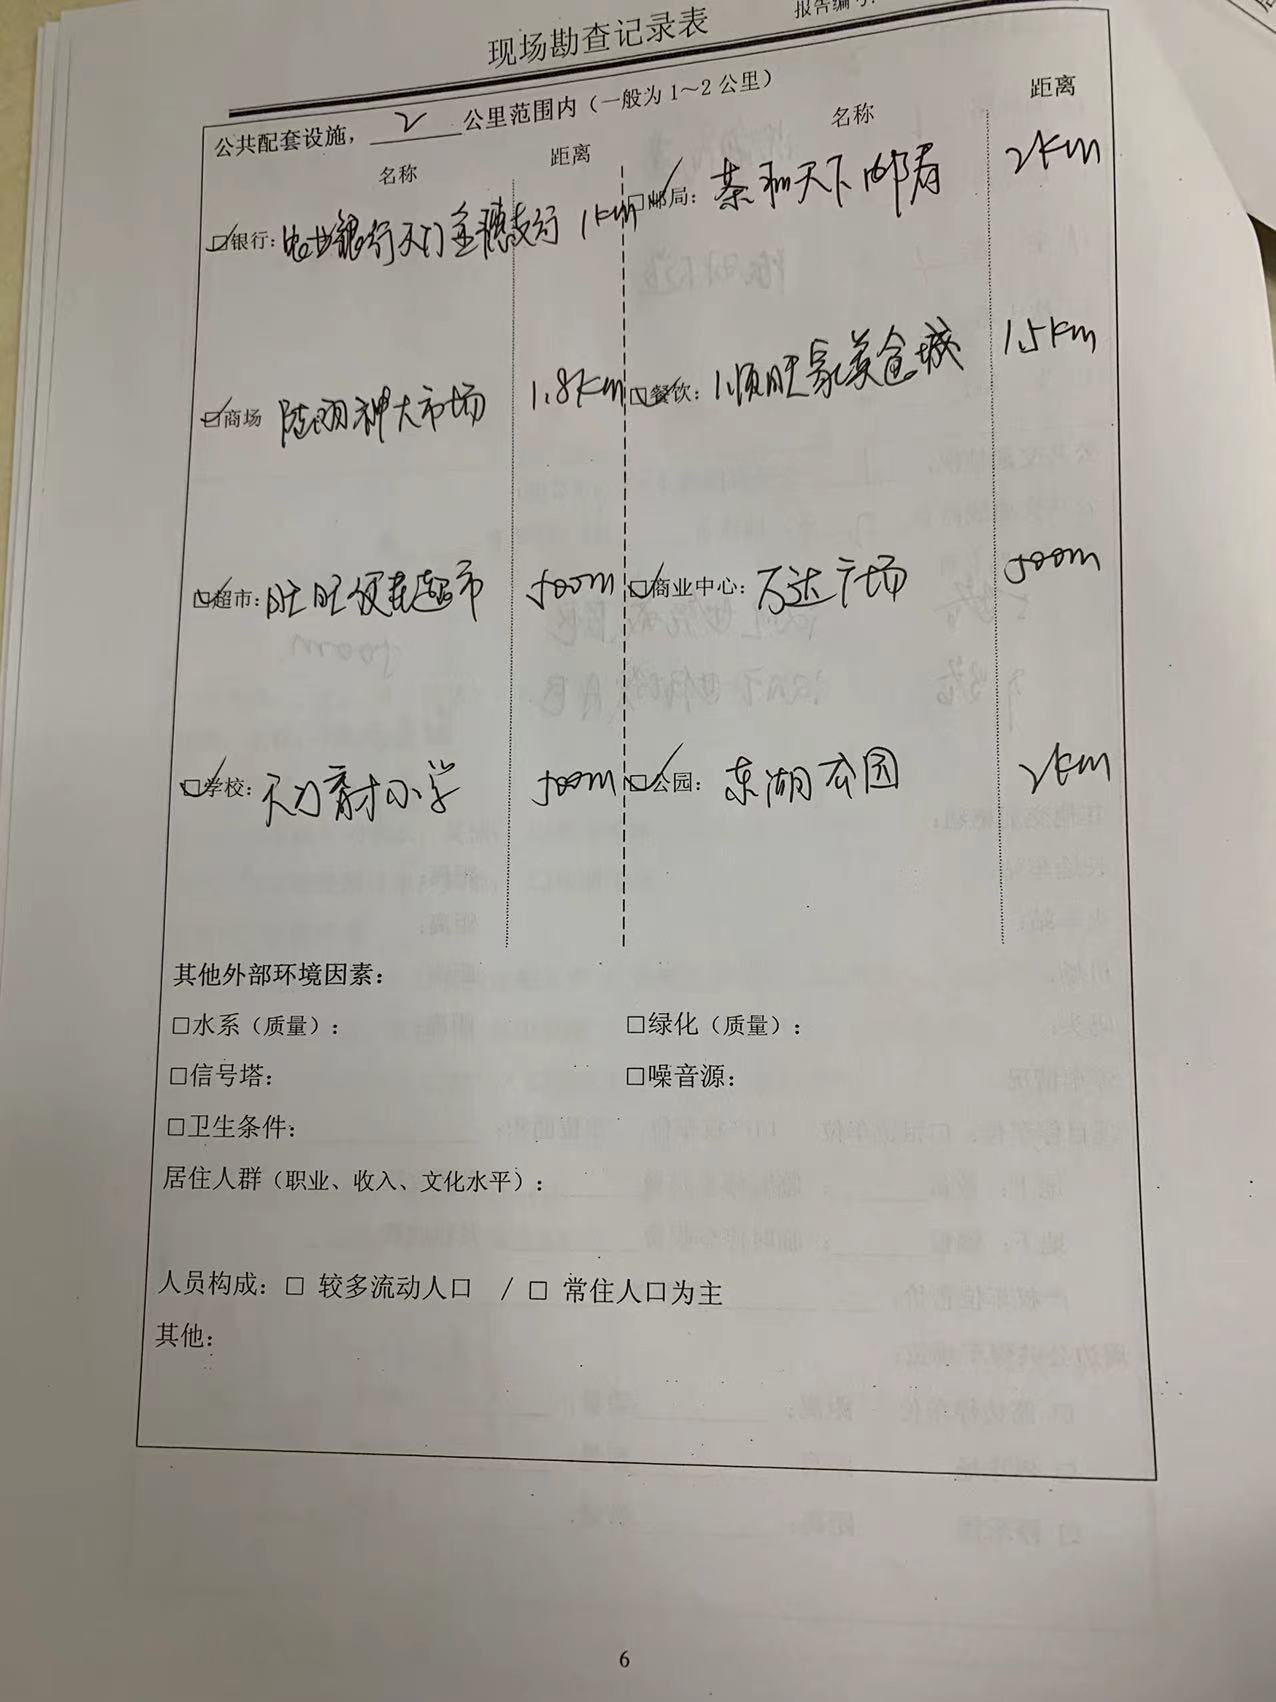 现场勘查记录表
报告编号:
公共配套设施，2公里范围内（一般为1～2公里）
名称 距离 名称 距离
☑银行：农业银行天门金穗支行 1km ☑邮局：茶和天下邮寄 2km
☑商场 陆羽神大市场 1.8km ☑餐饮：顺旺家美食城 1.5km
☑超市：旺旺便民超市 500m ☑商业中心：万达广场 500m
☑学校：天门育才小学 500m ☑公园：东湖公园 2km
其他外部环境因素：
□水系（质量）： □绿化（质量）：
□信号塔： □噪音源：
□卫生条件：
居住人群（职业、收入、文化水平）：
人员构成：□ 较多流动人口 / □ 常住人口为主
其他：
6